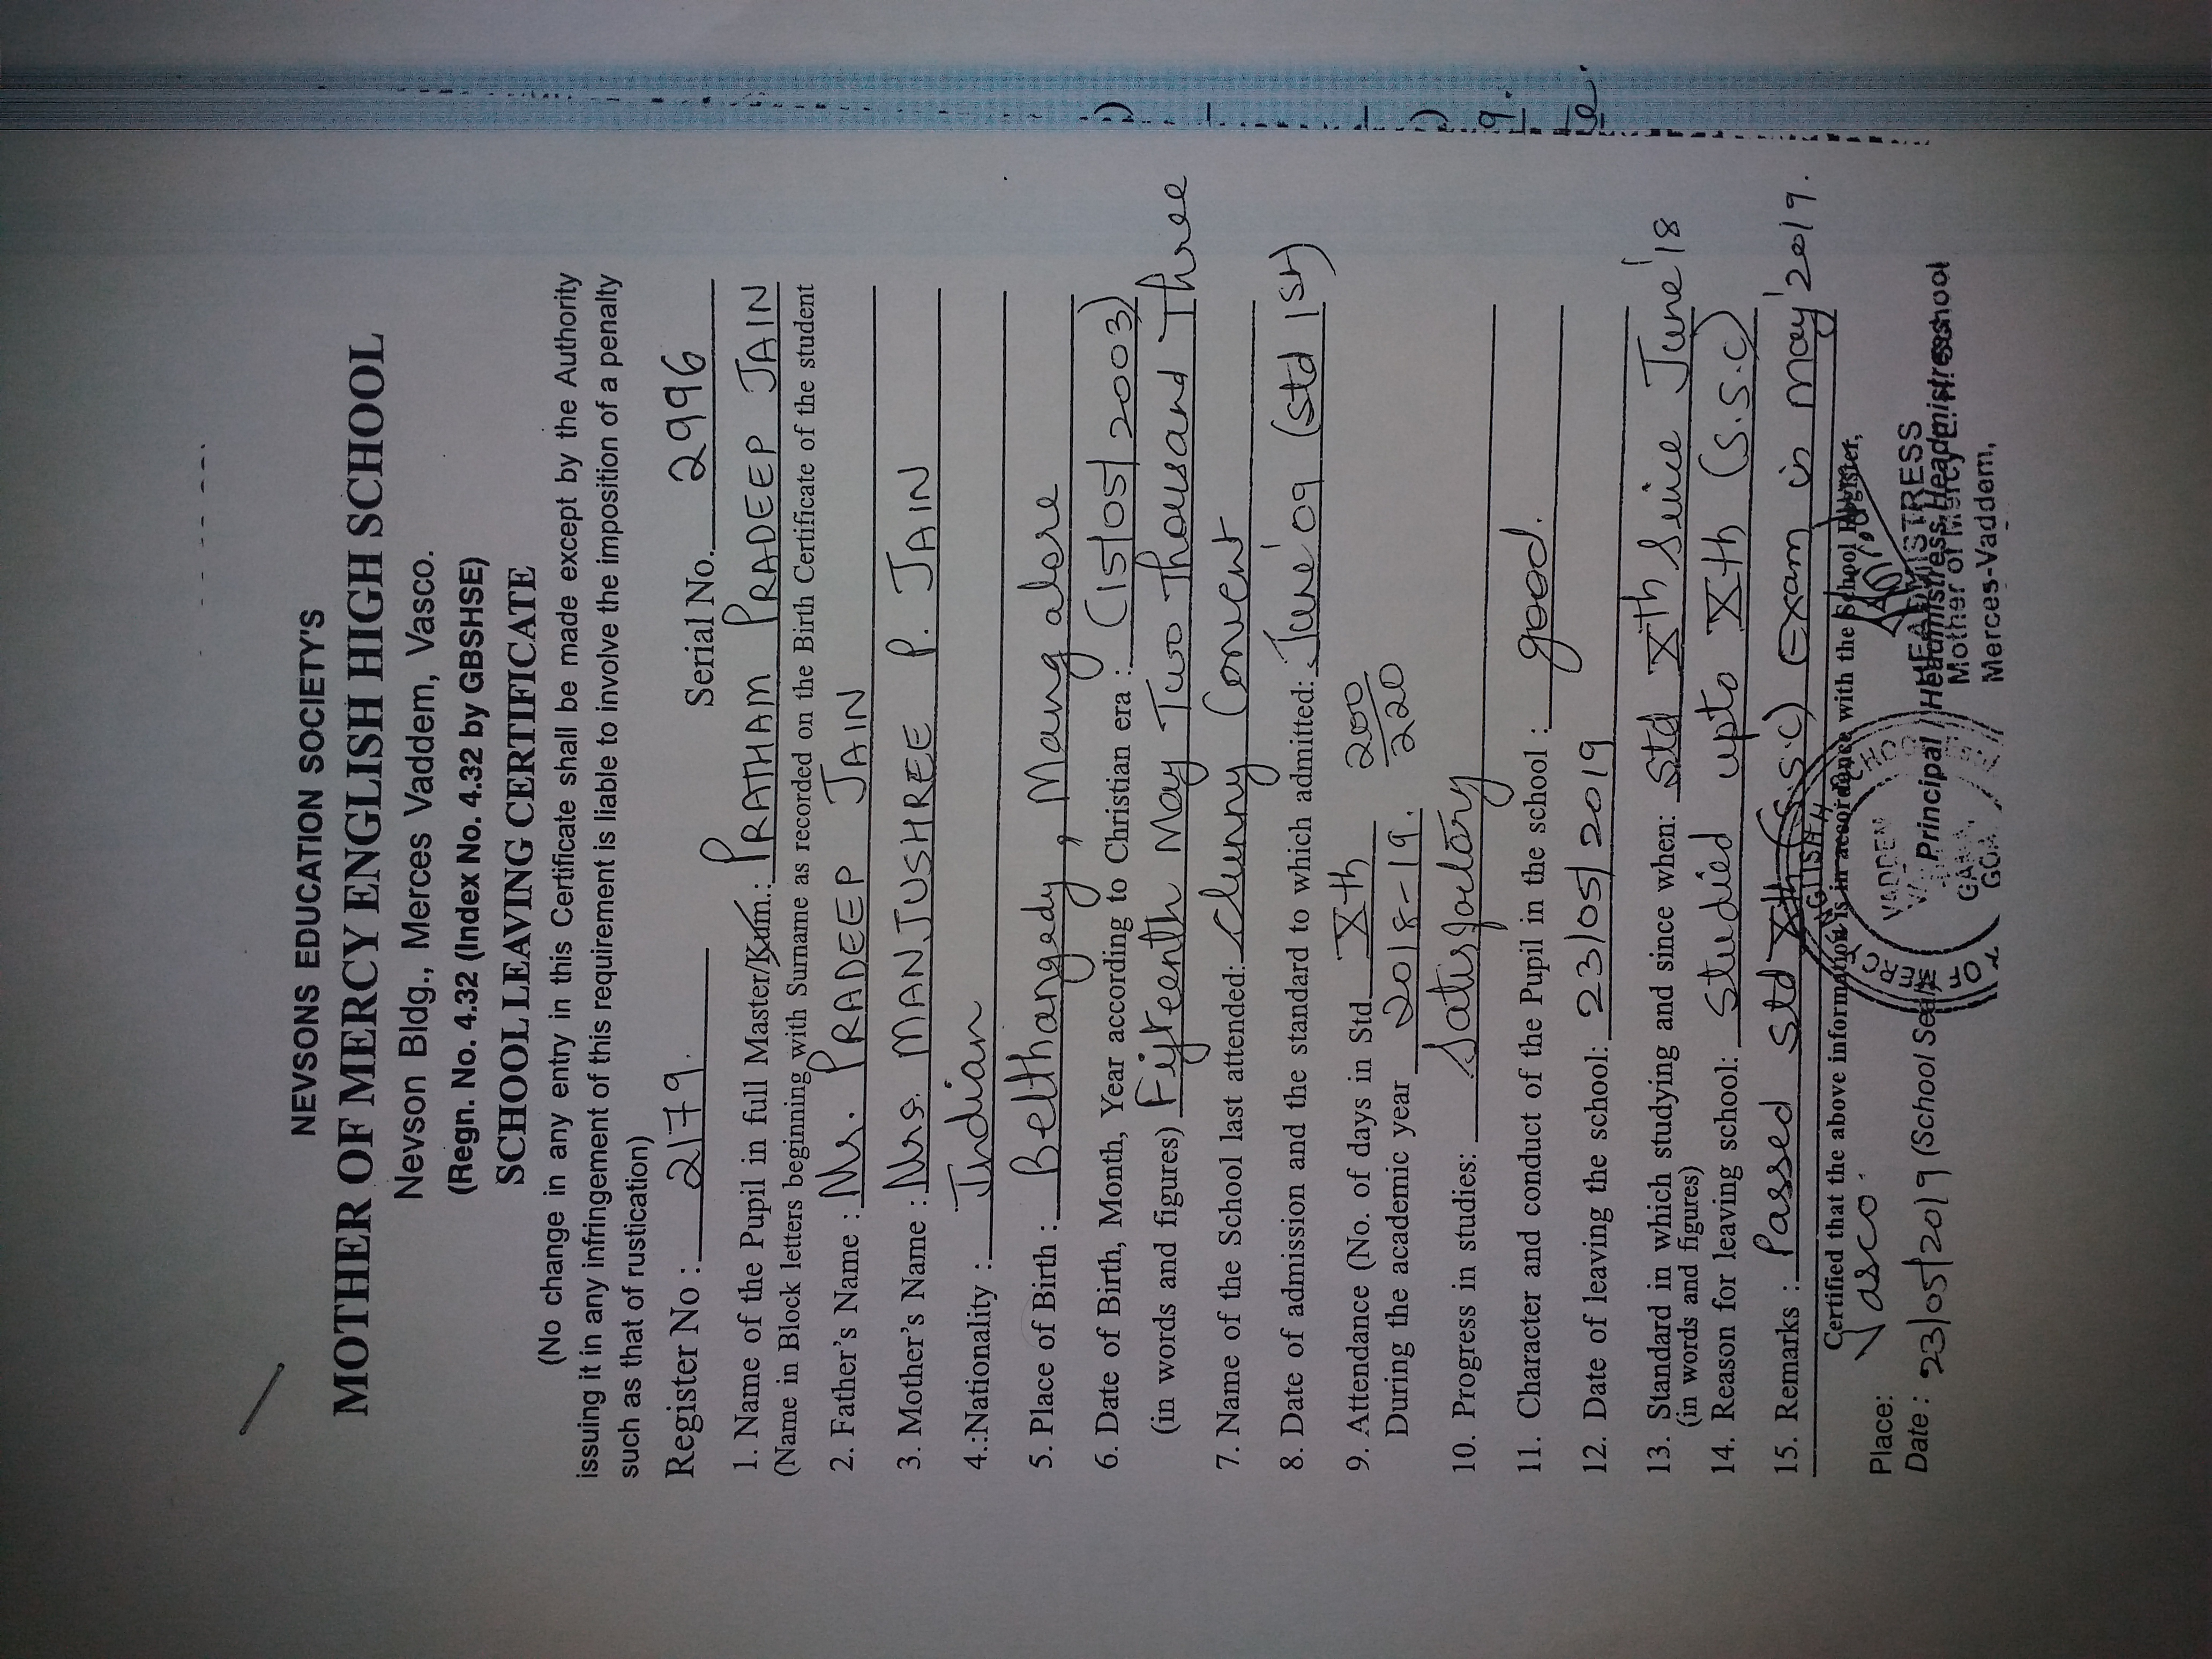 NEVSONS EDUCATION SOCIETY'S
MOTHER OF MERCY ENGLISH HIGH SCHOOL
Nevson Bldg., Merces Vaddem, Vasco.
(Regn. No. 4.32 (Index No. 4.32 by GBSHSE)
SCHOOL LEAVING CERTIFICATE
(No change in any entry in this Certificate shall be made except by the Authority
issuing it in any infringement of this requirement is liable to involve the imposition of a penalty
such as that of rustication)
Register No : 2179. Serial No. 2996
1. Name of the Pupil in full Master/Kum.: PRATHAM PRADEEP JAIN
(Name in Block letters beginning with Surname as recorded on the Birth Certificate of the student
2. Father's Name : Mr. PRADEEP JAIN
3. Mother's Name : Mrs. MANJUSHREE P. JAIN
4.:Nationality : Indian
5. Place of Birth : Belthangady, Mangalore
6. Date of Birth, Month, Year according to Christian era : (15/05/2003)
(in words and figures) Fifteenth May Two Thousand Three
7. Name of the School last attended: Clunny Convent
8. Date of admission and the standard to which admitted: June'09 (std 1st)
9. Attendance (No. of days in Std Xth 200/220
During the academic year 2018-19.
10. Progress in studies: Satisfactory
11. Character and conduct of the Pupil in the school : good.
12. Date of leaving the school: 23/05/2019
13. Standard in which studying and since when: Std Xth Since June'18
(in words and figures)
14. Reason for leaving school: Studied upto Xth (S.S.C)
15. Remarks : Passed Std Xth (S.S.C) Exam in May'2019.
Certified that the above information is in accordance with the School Register,
Place: Vasco.
Date : 23/05/2019 (School Seal) Principal / Headmistress
HEADMISTRESS
Mother of Mercy
Merces-Vaddem,
VADDEM
GOA